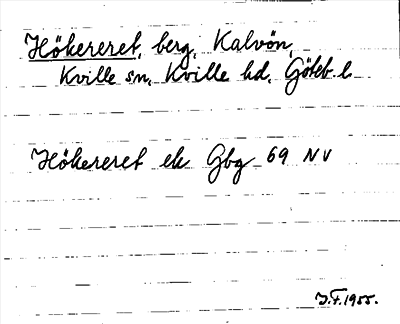 Hökereret, berg, Kalvön,
Kville sn, Kville hd, Göteb. l.
Hökereret ek Gbg 69 NV
J.F. 1955.